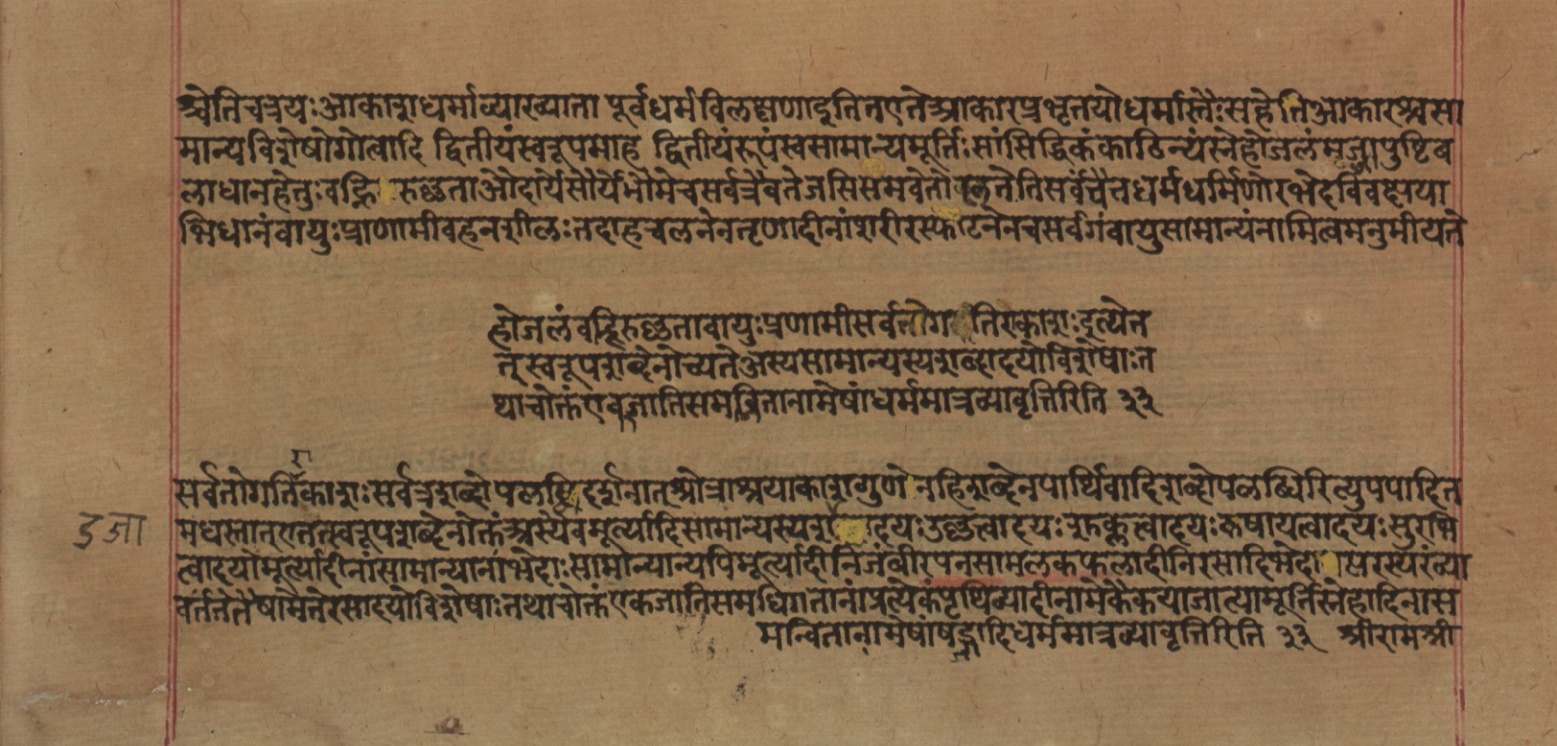 श्चेतिचत्रयः आकाशधर्माव्याख्याता पूर्वधर्मविलक्षणादुतितएतेआकारप्रभृतयोधर्मास्तैःसहेतिआकारश्चसा
मान्यविशेषोगोत्वादि द्वितीयंस्वरूपमाह द्वितीयंरूपंस्वसामान्यमूर्तिःसांसिद्धिकंकाठिन्यंस्नेहोजलंमज्जापुष्टिब
लाधानहेतुःवह्नि रुष्णताऔदार्येसौर्येभौमेचसर्वत्रैवतेजसिसमवेतो तेतिसर्वंचैतधर्मधर्मिणोरभेदविवक्षया
भिधानंवायुःप्राणामीवहनशीलःतदाहचलनेनतृणादीनांशरीरस्फोटनेनचसर्वगंवायुसामान्यंनामित्वमनुमीयते
होजलंवह्निरुष्णतावायुःप्रणामीसर्वतोग तिराकाशःइत्येत
त्स्वरूपशब्देनोच्यतेअस्यसामान्यस्यशब्दादयोविशेषाःत
थाचोक्तंएकजातिसमन्वितानामेषांधर्ममात्रव्यावृत्तिरिति ३३
सर्वतोगतिराकाशःसर्वत्रशब्दोपलब्धि दर्शनात्श्रोत्राश्रयाकाशगुणे नहिशब्देनपार्थिवादिशब्दोपलब्धिरित्युपपादित
इजा
मधस्तात्एतत्स्वरूपशब्देनोक्तंअस्यैवमूर्त्यादिसामान्यस्यश दयःउष्णत्वादयःशुक्लत्वादयःकषायत्वादयःसुरभि
त्वादयोमूर्त्यादीनांसामान्यानांभेदाःसामान्यान्यपिमूर्त्यादीनिजंबीरपनसामलकफलादीनिरसादिभेदा परस्परंव्या
वर्तंतेतेषामेतेरसादयोविशेषाःतथाचोक्तंएकजातिसमधिगतानांप्रत्येकंपृथिव्यादीनामेकैकयाजात्यामूर्तिस्नेहादिनास
मन्वितानामेषांषड्जादिधर्ममात्रव्यावृत्तिरिति ३३ श्रीरामश्री